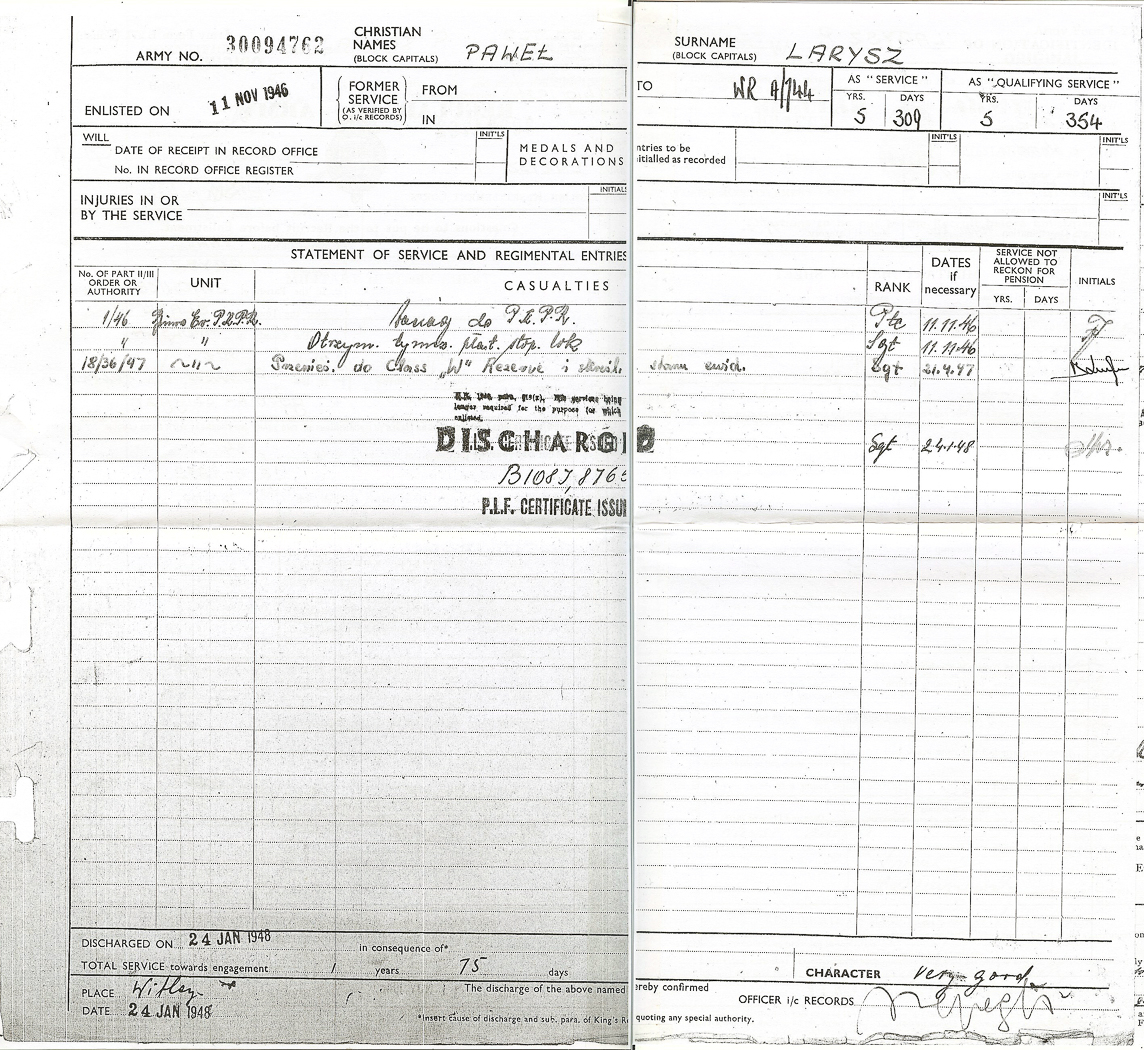 ARMY NO. 30094762 CHRISTIAN NAMES (BLOCK CAPITALS) PAWEŁ SURNAME (BLOCK CAPITALS) LARYSZ
ENLISTED ON 11 NOV 1946 FORMER SERVICE (AS VERIFIED BY O. i/c RECORDS) FROM TO WR A/744 AS "SERVICE" AS "QUALIFYING SERVICE"
YRS. DAYS YRS. DAYS
IN 5 309 5 354
WILL INIT'LS INIT'LS INIT'LS
DATE OF RECEIPT IN RECORD OFFICE MEDALS AND ntries to be
No. IN RECORD OFFICE REGISTER DECORATIONS nitialled as recorded
INJURIES IN OR BY THE SERVICE INITIALS INIT'LS
STATEMENT OF SERVICE AND REGIMENTAL ENTRIES
No. OF PART II/III ORDER OR AUTHORITY UNIT CASUALTIES RANK DATES if necessary SERVICE NOT ALLOWED TO RECKON FOR PENSION INITIALS
YRS. DAYS
1/46 P.R.P.R. do P.R.P.R. Pte 11.11.46
" " stop. Sgt 11.11.46
18/36/47 do Class "W" Reserve i stanu ewid. Sgt 21.4.47
being
longer required for the purpose for which
enlisted.
DISCHARGED Sgt 24.1.48
B1087,876
P.L.F. CERTIFICATE ISSU
DISCHARGED ON 24 JAN 1948 in consequence of*
TOTAL SERVICE towards engagement 1 years 75 days CHARACTER Very good.
PLACE Witley The discharge of the above named ereby confirmed
DATE 24 JAN 1948 OFFICER i/c RECORDS
*Insert cause of discharge and sub. para. of King's Re quoting any special authority.